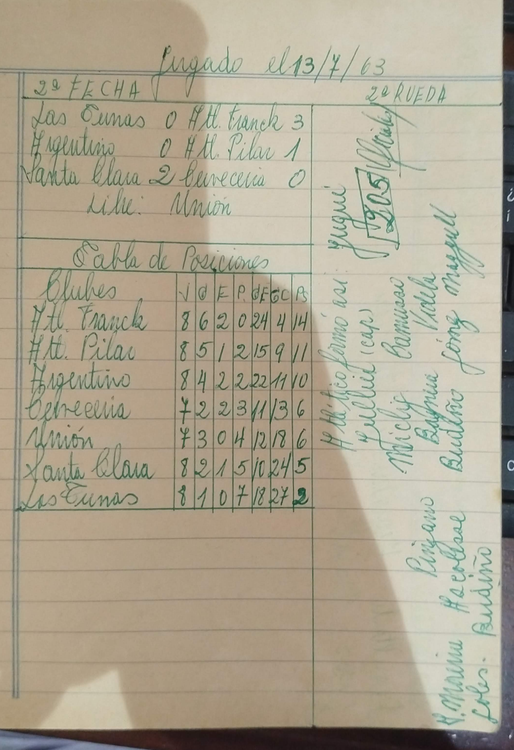 Jugado el 13/7/63
2ª FECHA 2ª RUEDA
Las Tunas 0 Atl. Franck 3
Argentino 0 Atl. Pilar 1
Santa Clara 2 Cervecería 0
Libre: Unión
Tabla de Posiciones
Clubes J G E P GF GC Ps
Atl. Franck 8 6 2 0 24 4 14
Atl. Pilar 8 5 1 2 15 9 11
Argentino 8 4 2 2 22 11 10
Cervecería 7 2 2 3 11 13 6
Unión 7 3 0 4 12 18 6
Santa Clara 8 2 1 5 10 24 5
Las Tunas 8 1 0 7 18 27 2
Atlético formó así:
(cap)
Videla
Budiño
Goles: Budiño
205